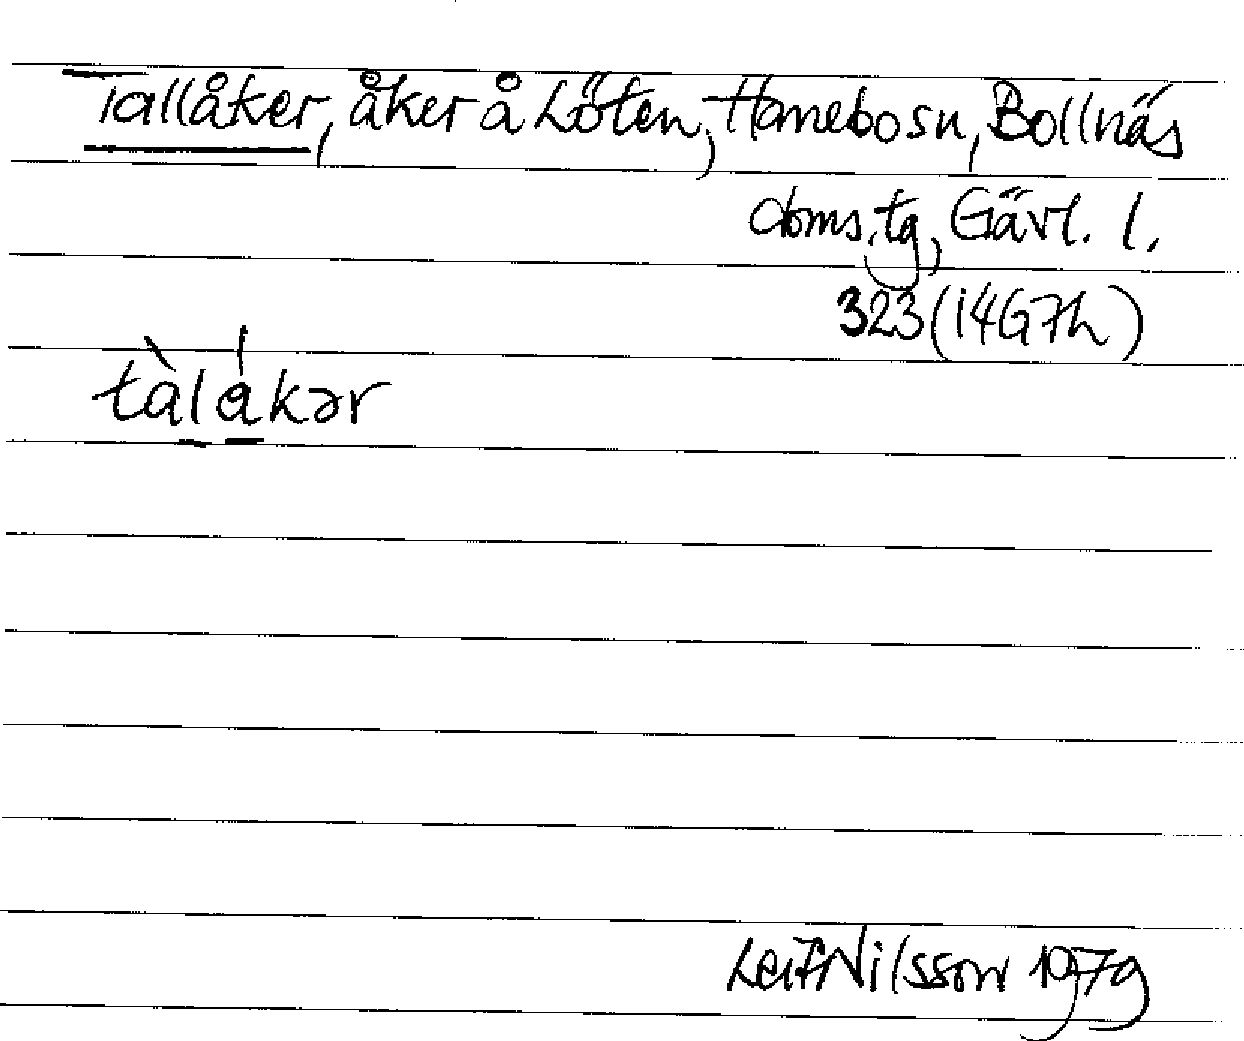 Tallåker, åker å Löten, Hanebo sn, Bollnäs
doms.tg, Gävl. l.
323 (14G7h)
tàlákər
Leif Nilsson 1979